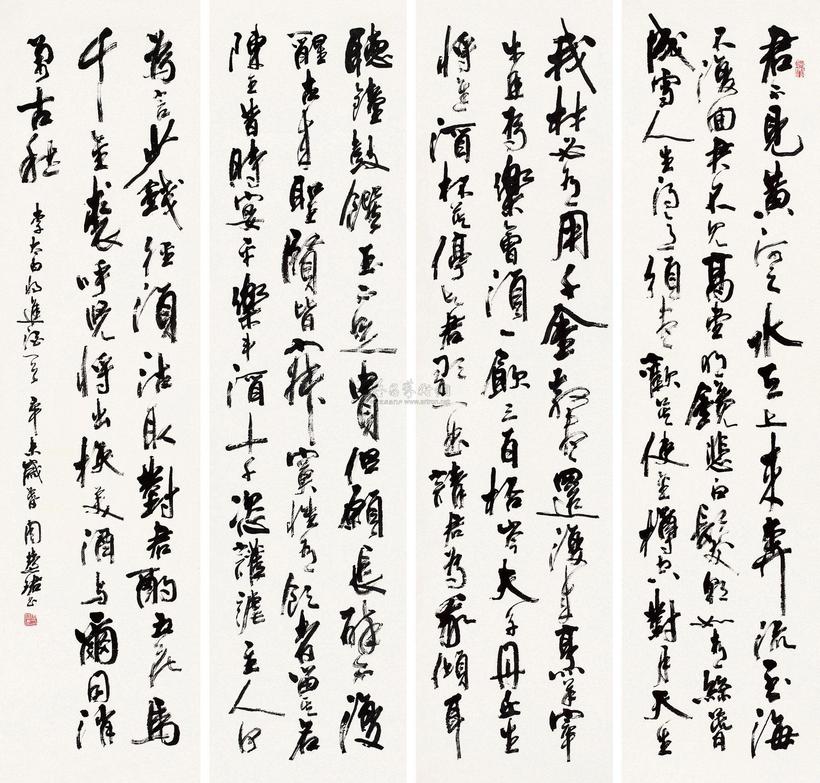 君不見黄河之水天上来奔流至海
不復回君不見高堂明鏡悲白髮朝如青絲暮
成雪人生得意須盡歡莫使金樽空對月天生
我材必有用千金散盡還復来烹羊宰
牛且為樂會須一飲三百杯岑夫子丹丘生
將進酒杯莫停與君歌一曲請君為我傾耳
聽鐘鼓饌玉不足貴但願長醉不復
醒古来聖賢皆寂寞惟有飲者留其名
陳王昔時宴平樂斗酒十千恣讙謔主人何
為言少錢徑須沽取對君酌五花馬
千金裘呼兒將出換美酒與爾同消
萬古愁 李太白將進酒一首 辛未歲 周慧珺